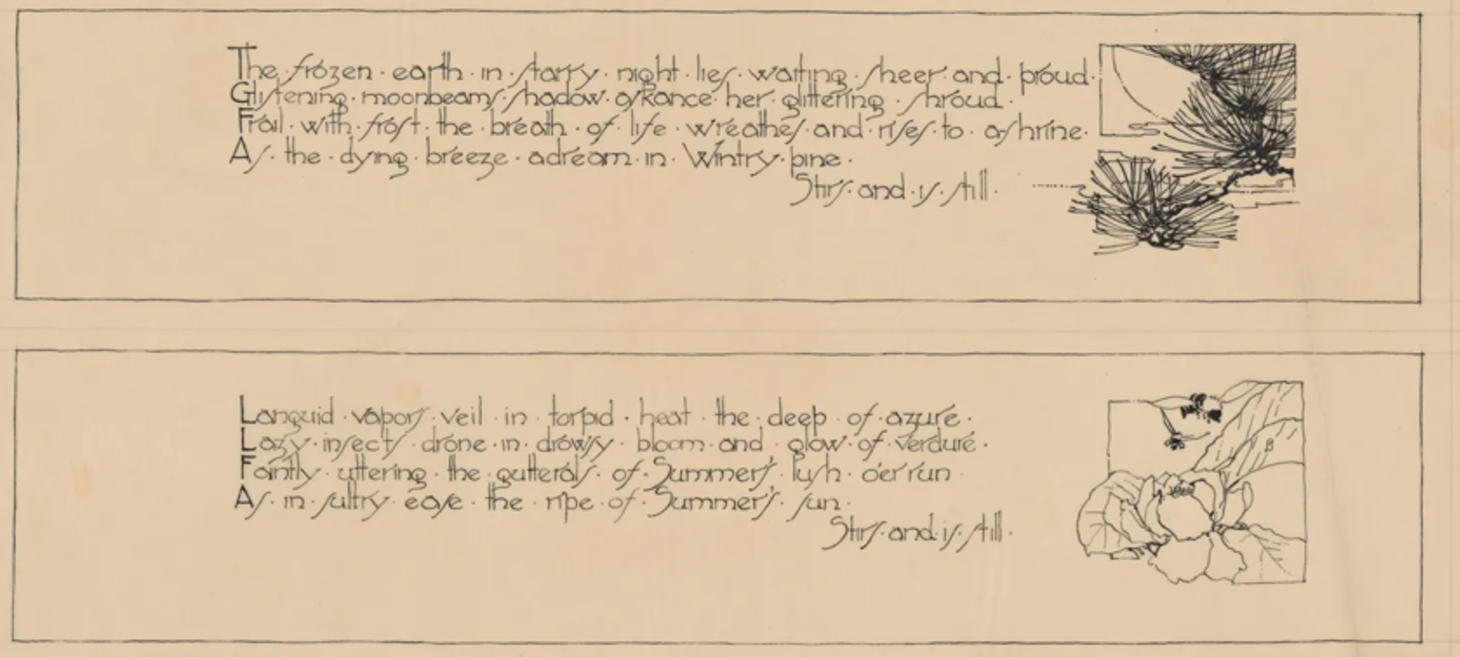 The · frozen · earth · in · starry · night · lies · waiting · sheer · and · proud ·
Glistening · moonbeams · shadow · askance · her · glittering · shroud ·
Frail · with · frost · the · breath · of · life · wreathes · and · rises · to · a · shrine ·
As · the · dying · breeze · adream · in · Wintry · pine ·
Stirs · and · is · still ·
Languid · vapors · veil · in · torpid · heat · the · deep · of · azure ·
Lazy · insects · drone · in · drowsy · bloom · and · glow · of · verdure ·
Faintly · uttering · the · gutterals · of · Summer's · lush · o'er run
As · in · sultry · ease · the · ripe · of · Summer's · sun ·
Stirs · and · is · still ·